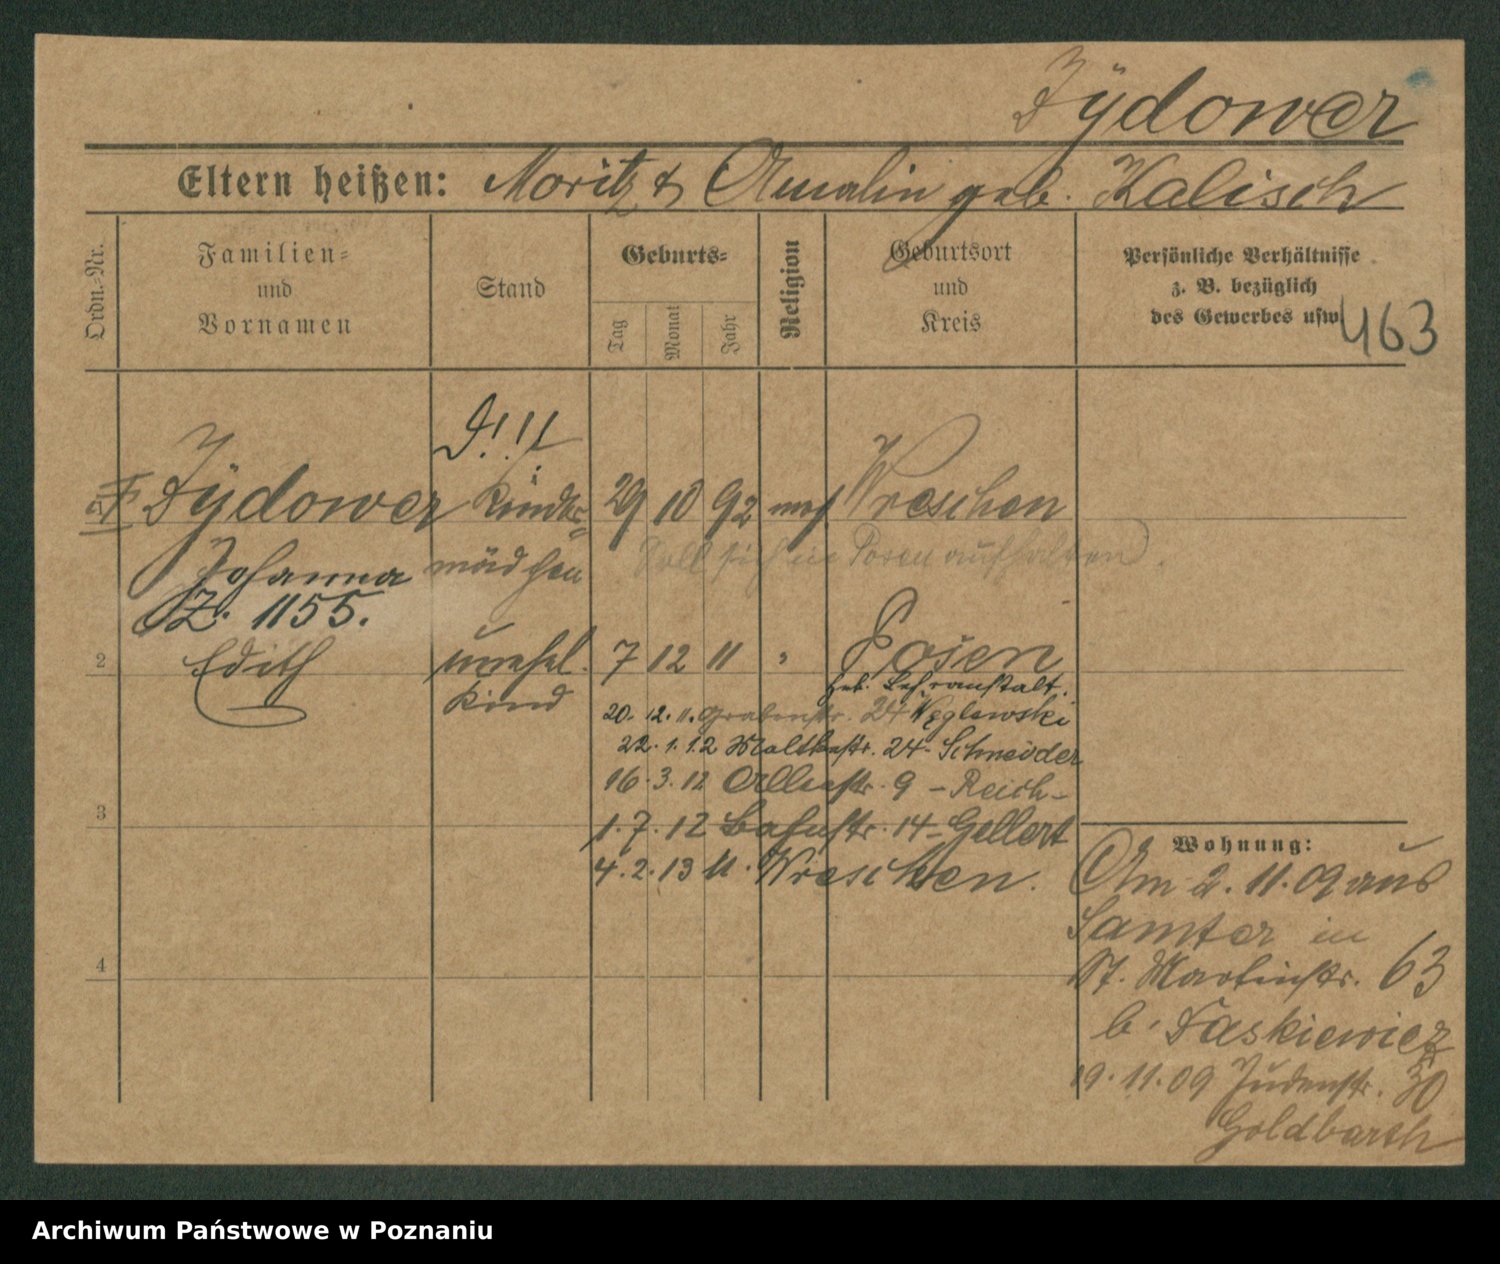 Zÿdower
Eltern heißen: Moritz & Amalie geb. Kalisch
Ordn.-Nr.
Familien=
und
Vornamen
Stand
Geburts=
Tag
Monat
Jahr
Religion
Geburtsort
und
Kreis
Persönliche Verhältnisse
z. B. bezüglich
des Gewerbes usw.
463
D!!!
Zÿdower Kinder= 29 10 92 mos Wreschen
Johanna mädchen
Soll sich in Posen aufhalten
Z. 1155.
2 Edith unehel. 7 12 11 " Posen
Kind
Heb. Lehranstalt.
20. 12. 11. Grabenstr. 24 Węglewski
22. 1. 12 Moltkestr. 24 - Schneider
16. 3. 12 Alleestr. 9 - Reich -
3
1. 7. 12 Bahnstr. 14 - Gellert
4. 2. 13 n. Wreschen.
4
Wohnung:
Am 2. 11. 09 aus
Samter in
St. Martinstr. 63
b. Taskiewicz
19. 11. 09 Judenstr. 30
Goldbarth
Archiwum Państwowe w Poznaniu